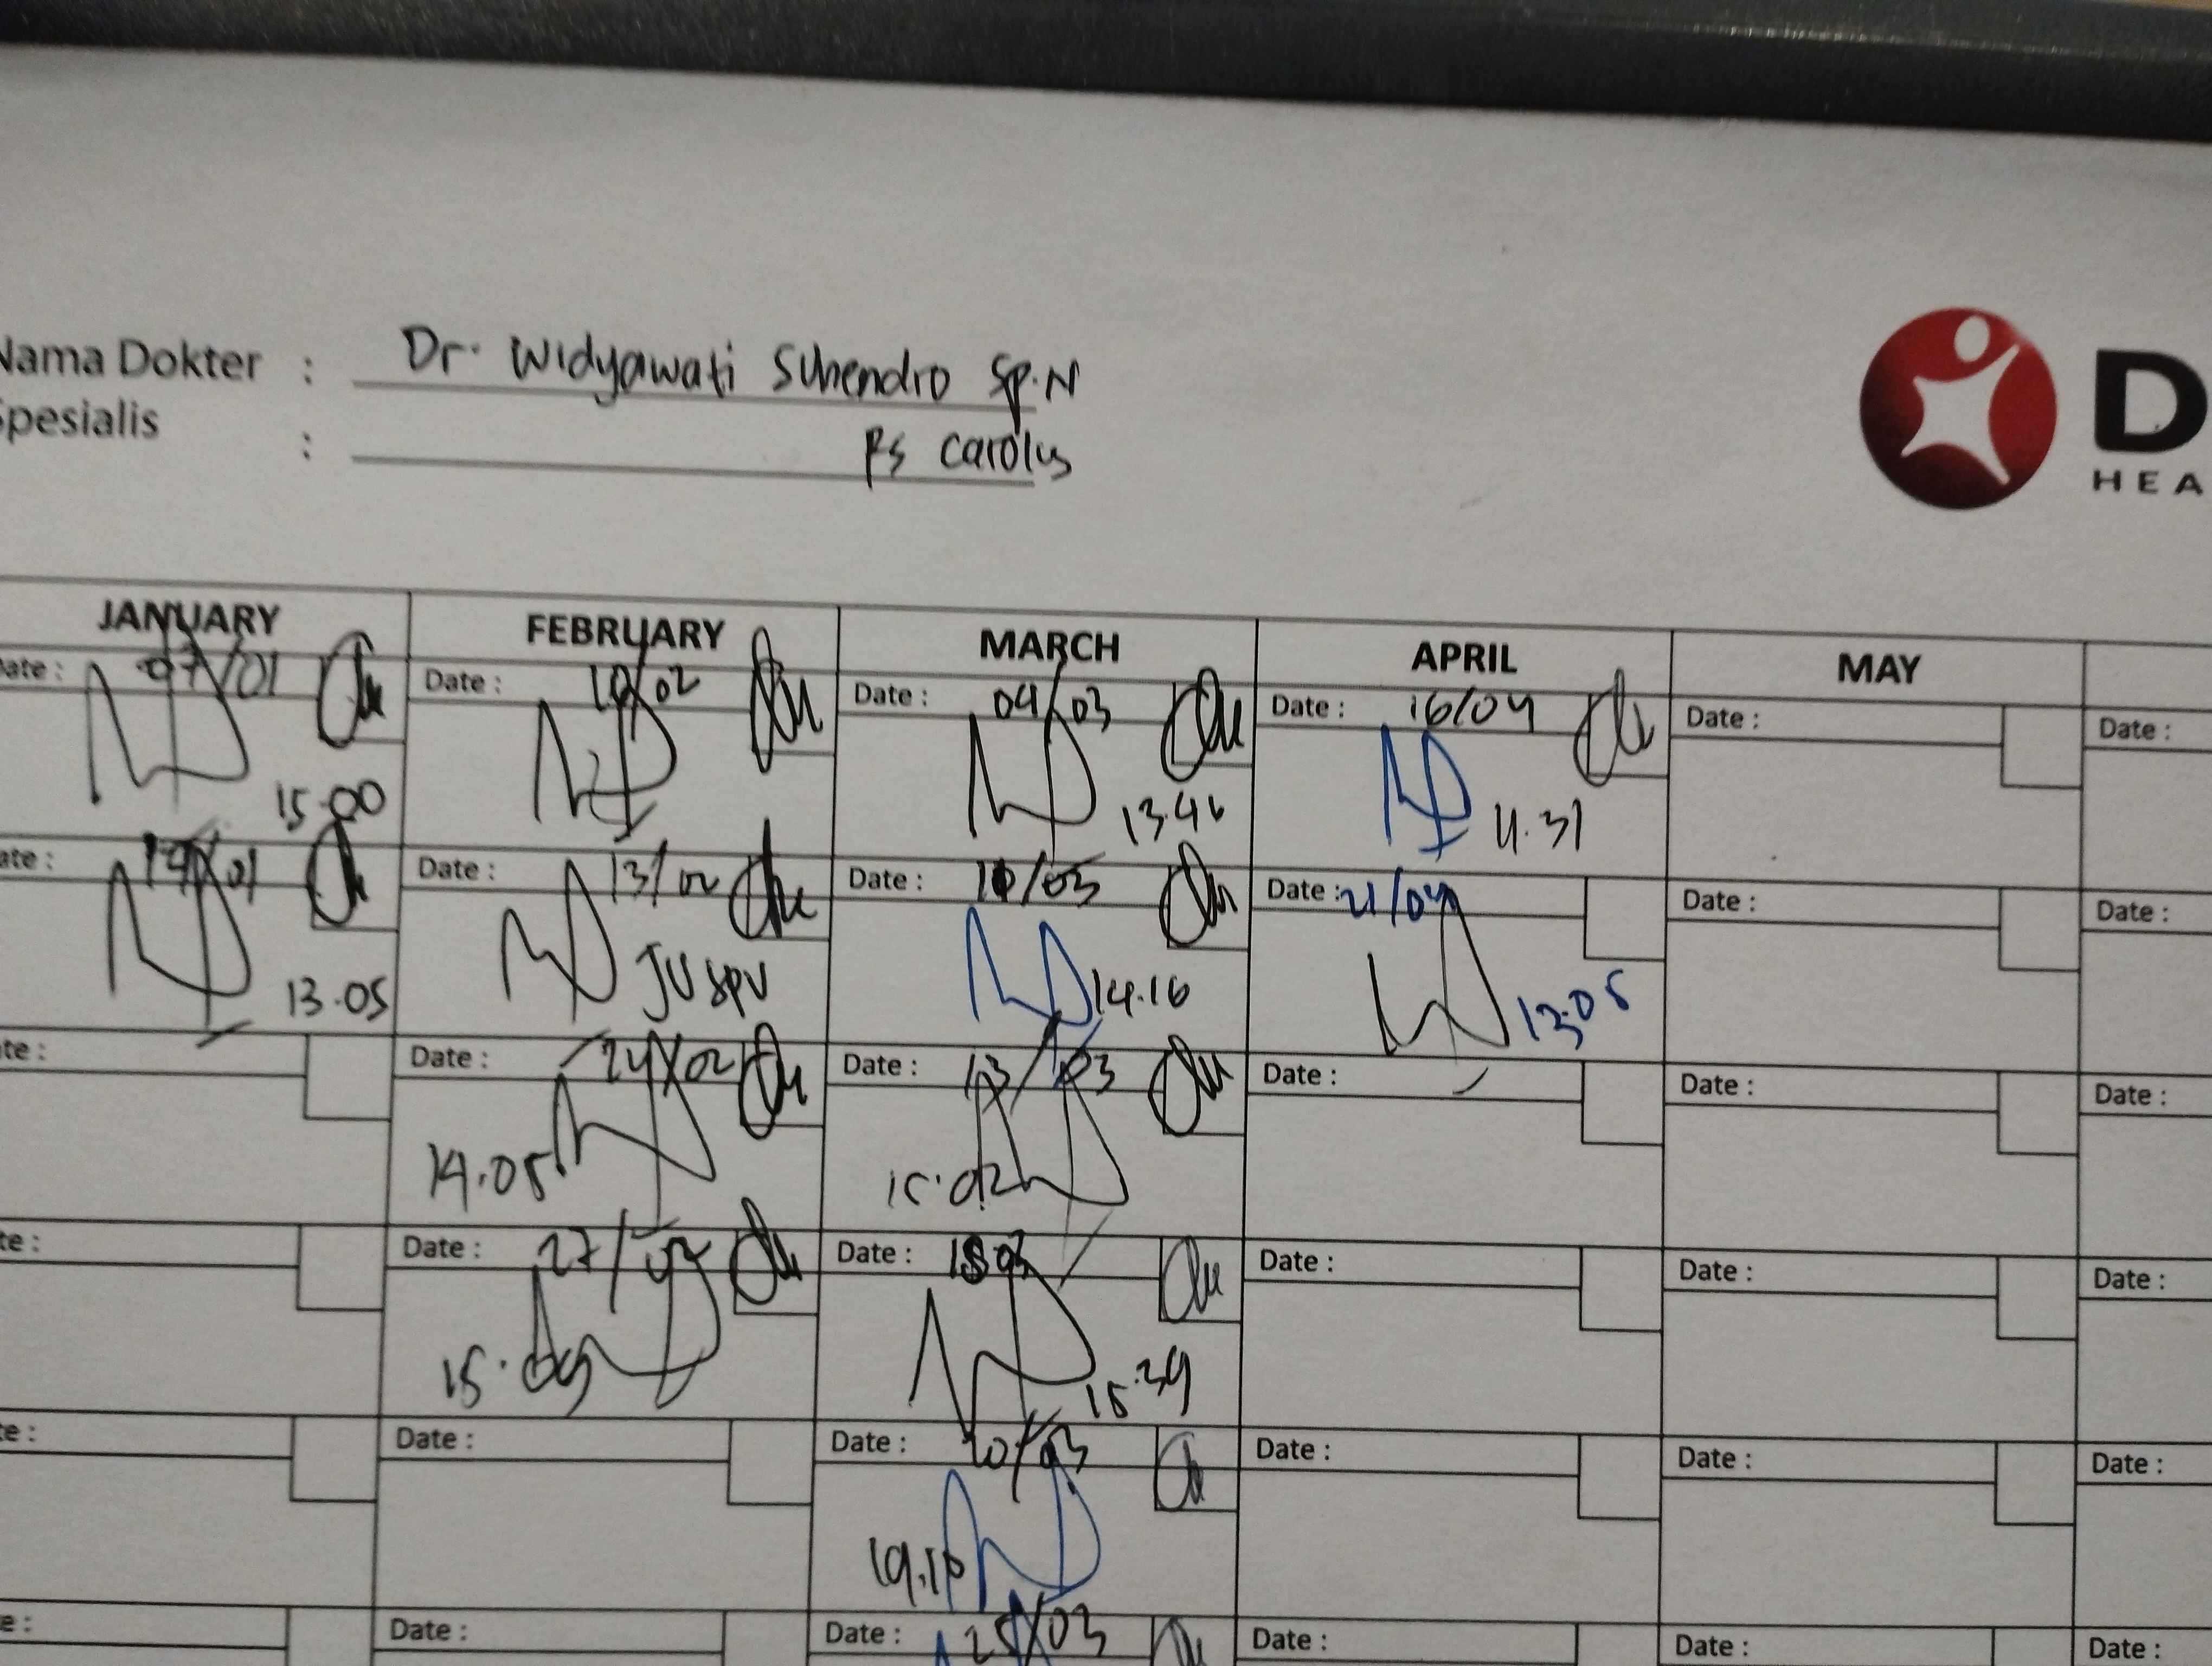 Nama Dokter : Dr. Widyawati Suhendro Sp.N
Spesialis : RS Carolus
D
HEA
JANUARY FEBRUARY MARCH APRIL MAY
Date : 07/01 Date : 10/02 Date : 04/03 Date : 16/04 Date : Date :
15.00 13.46 11.31
Date : /01 Date : 13/02 Date : /03 Date : 21/04 Date : Date :
13.05 JV SPV 14.16 13.05
Date : Date : 24/02 Date : 13/03 Date : Date : Date :
14.05 15.02
Date : Date : 27/02 Date : 18/03 Date : Date : Date :
15.09 15.39
Date : Date : Date : 20/03 Date : Date : Date :
19.10
Date : Date : Date : 25/03 Date : Date : Date :